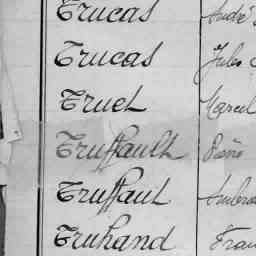 Trucas André
Trucas Jules
Truel Marcel
Truffault René
Truffaut
Truhand